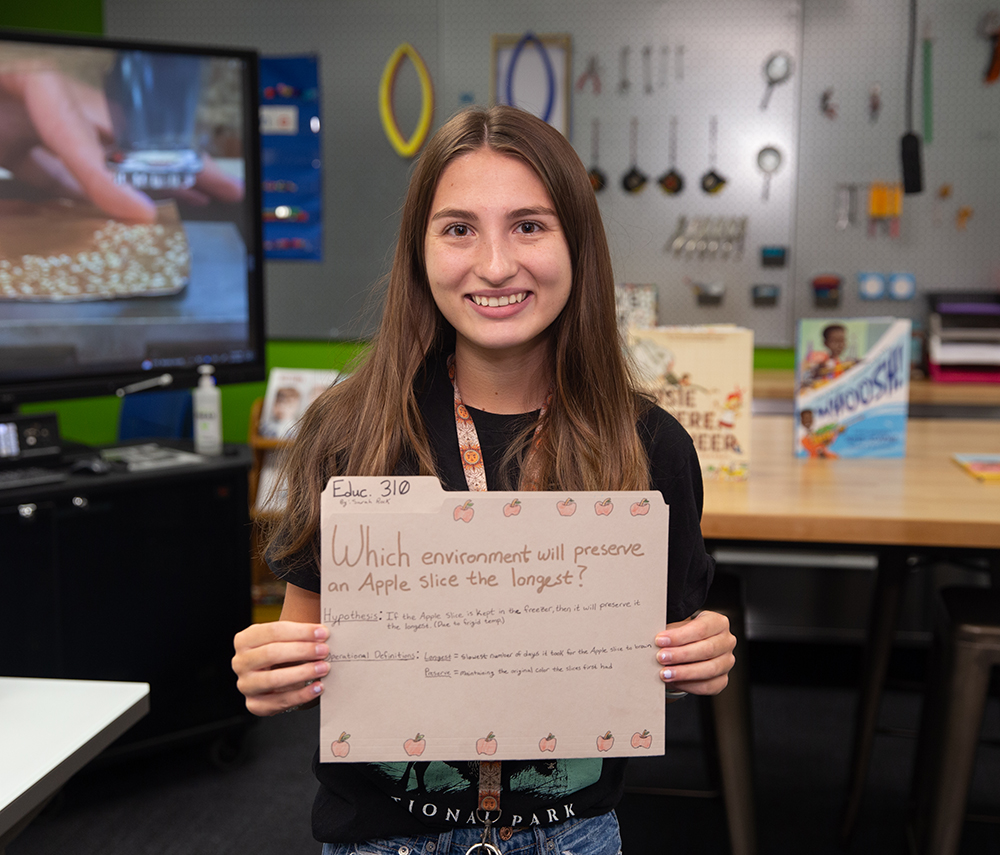 Educ. 310
Which environment will preserve
an Apple slice the longest?
Hypothesis: If the Apple slice is kept in the freezer, then it will preserve it
the longest. (Due to frigid temp)
Operational Definitions: Longest = slowest number of days it took for the Apple slice to brown
Preserve = maintaining the original color the slices first had
TIONAL PARK
WHOOSH!